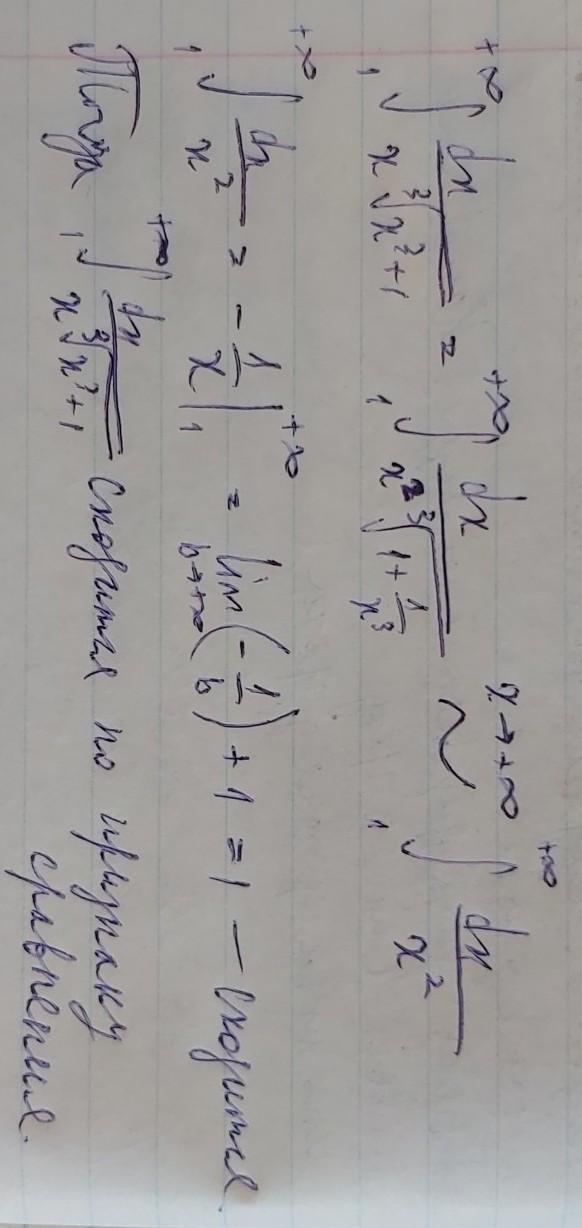 ₁∫^{+∞} dx / (x ∛(x³+1)) = ₁∫^{+∞} dx / (x² ∛(1 + 1/x³)) ~ ^{x→+∞} ₁∫^{+∞} dx / x²
₁∫^{+∞} dx / x² = - 1/x |₁^{+∞} = lim_{b→+∞} (- 1/b) + 1 = 1 – сходится
Тогда ₁∫^{+∞} dx / (x ∛(x³+1)) сходится по признаку
сравнения.